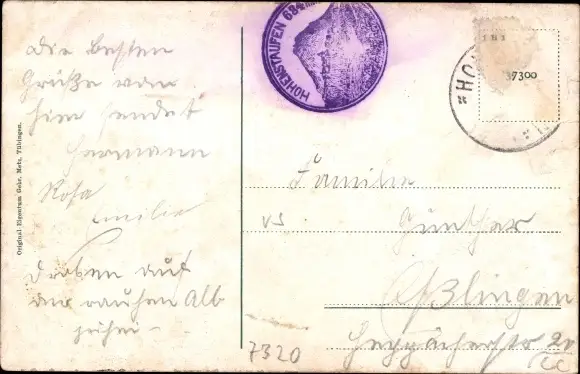 Die besten
Grüße von
hier sendet
Hermann
Rosa
Emilie
Droben auf
der rauhen Alb
Original Eigentum Gebr. Metz, Tübingen.
HOHENSTAUFEN 684 m
37300
Familie
Günther
Eßlingen
20
7320